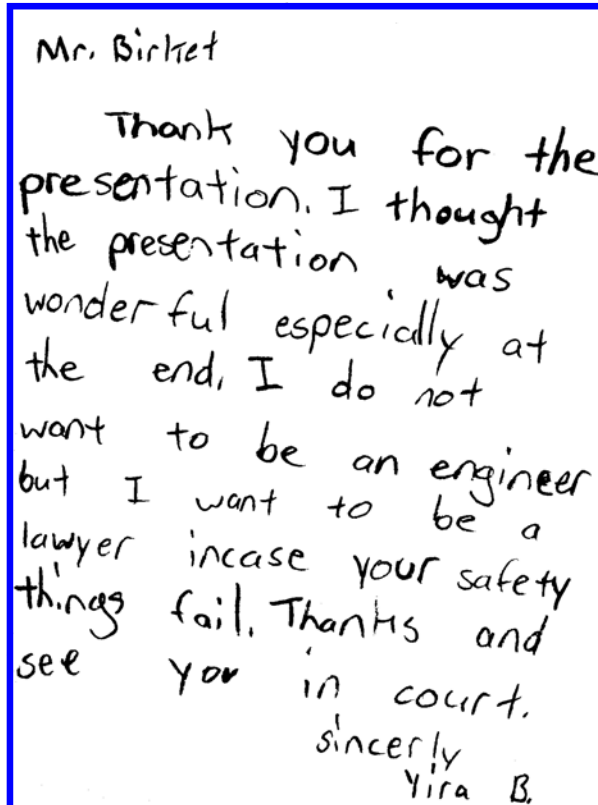 Mr. Birket
Thank you for the
presentation. I thought
the presentation was
wonderful especially at
the end. I do not
want to be an engineer
but I want to be a
lawyer incase your safety
things fail. Thanks and
see you in court.
sincerly
Yira B.